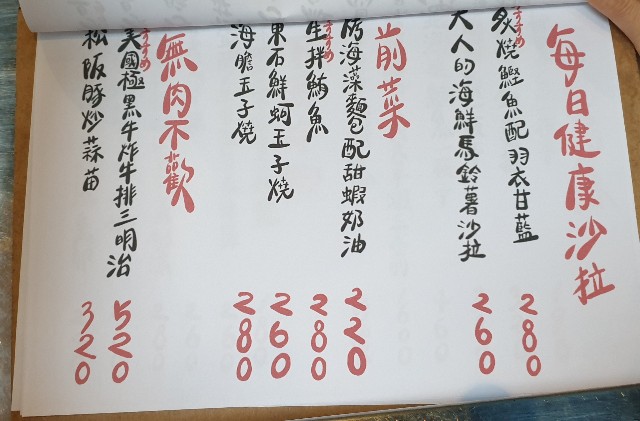 每日健康沙拉
炙燒鰹魚配羽衣甘藍 280
大人的海鮮馬鈴薯沙拉 260
前菜
防海菜麵包配甜蝦奶油 220
生拌鮪魚 280
果石鮮蚵玉子燒 260
海膽玉子燒 280
無肉不歡
美國極黑牛炸牛排三明治 520
松阪豚炒蒜苗 320